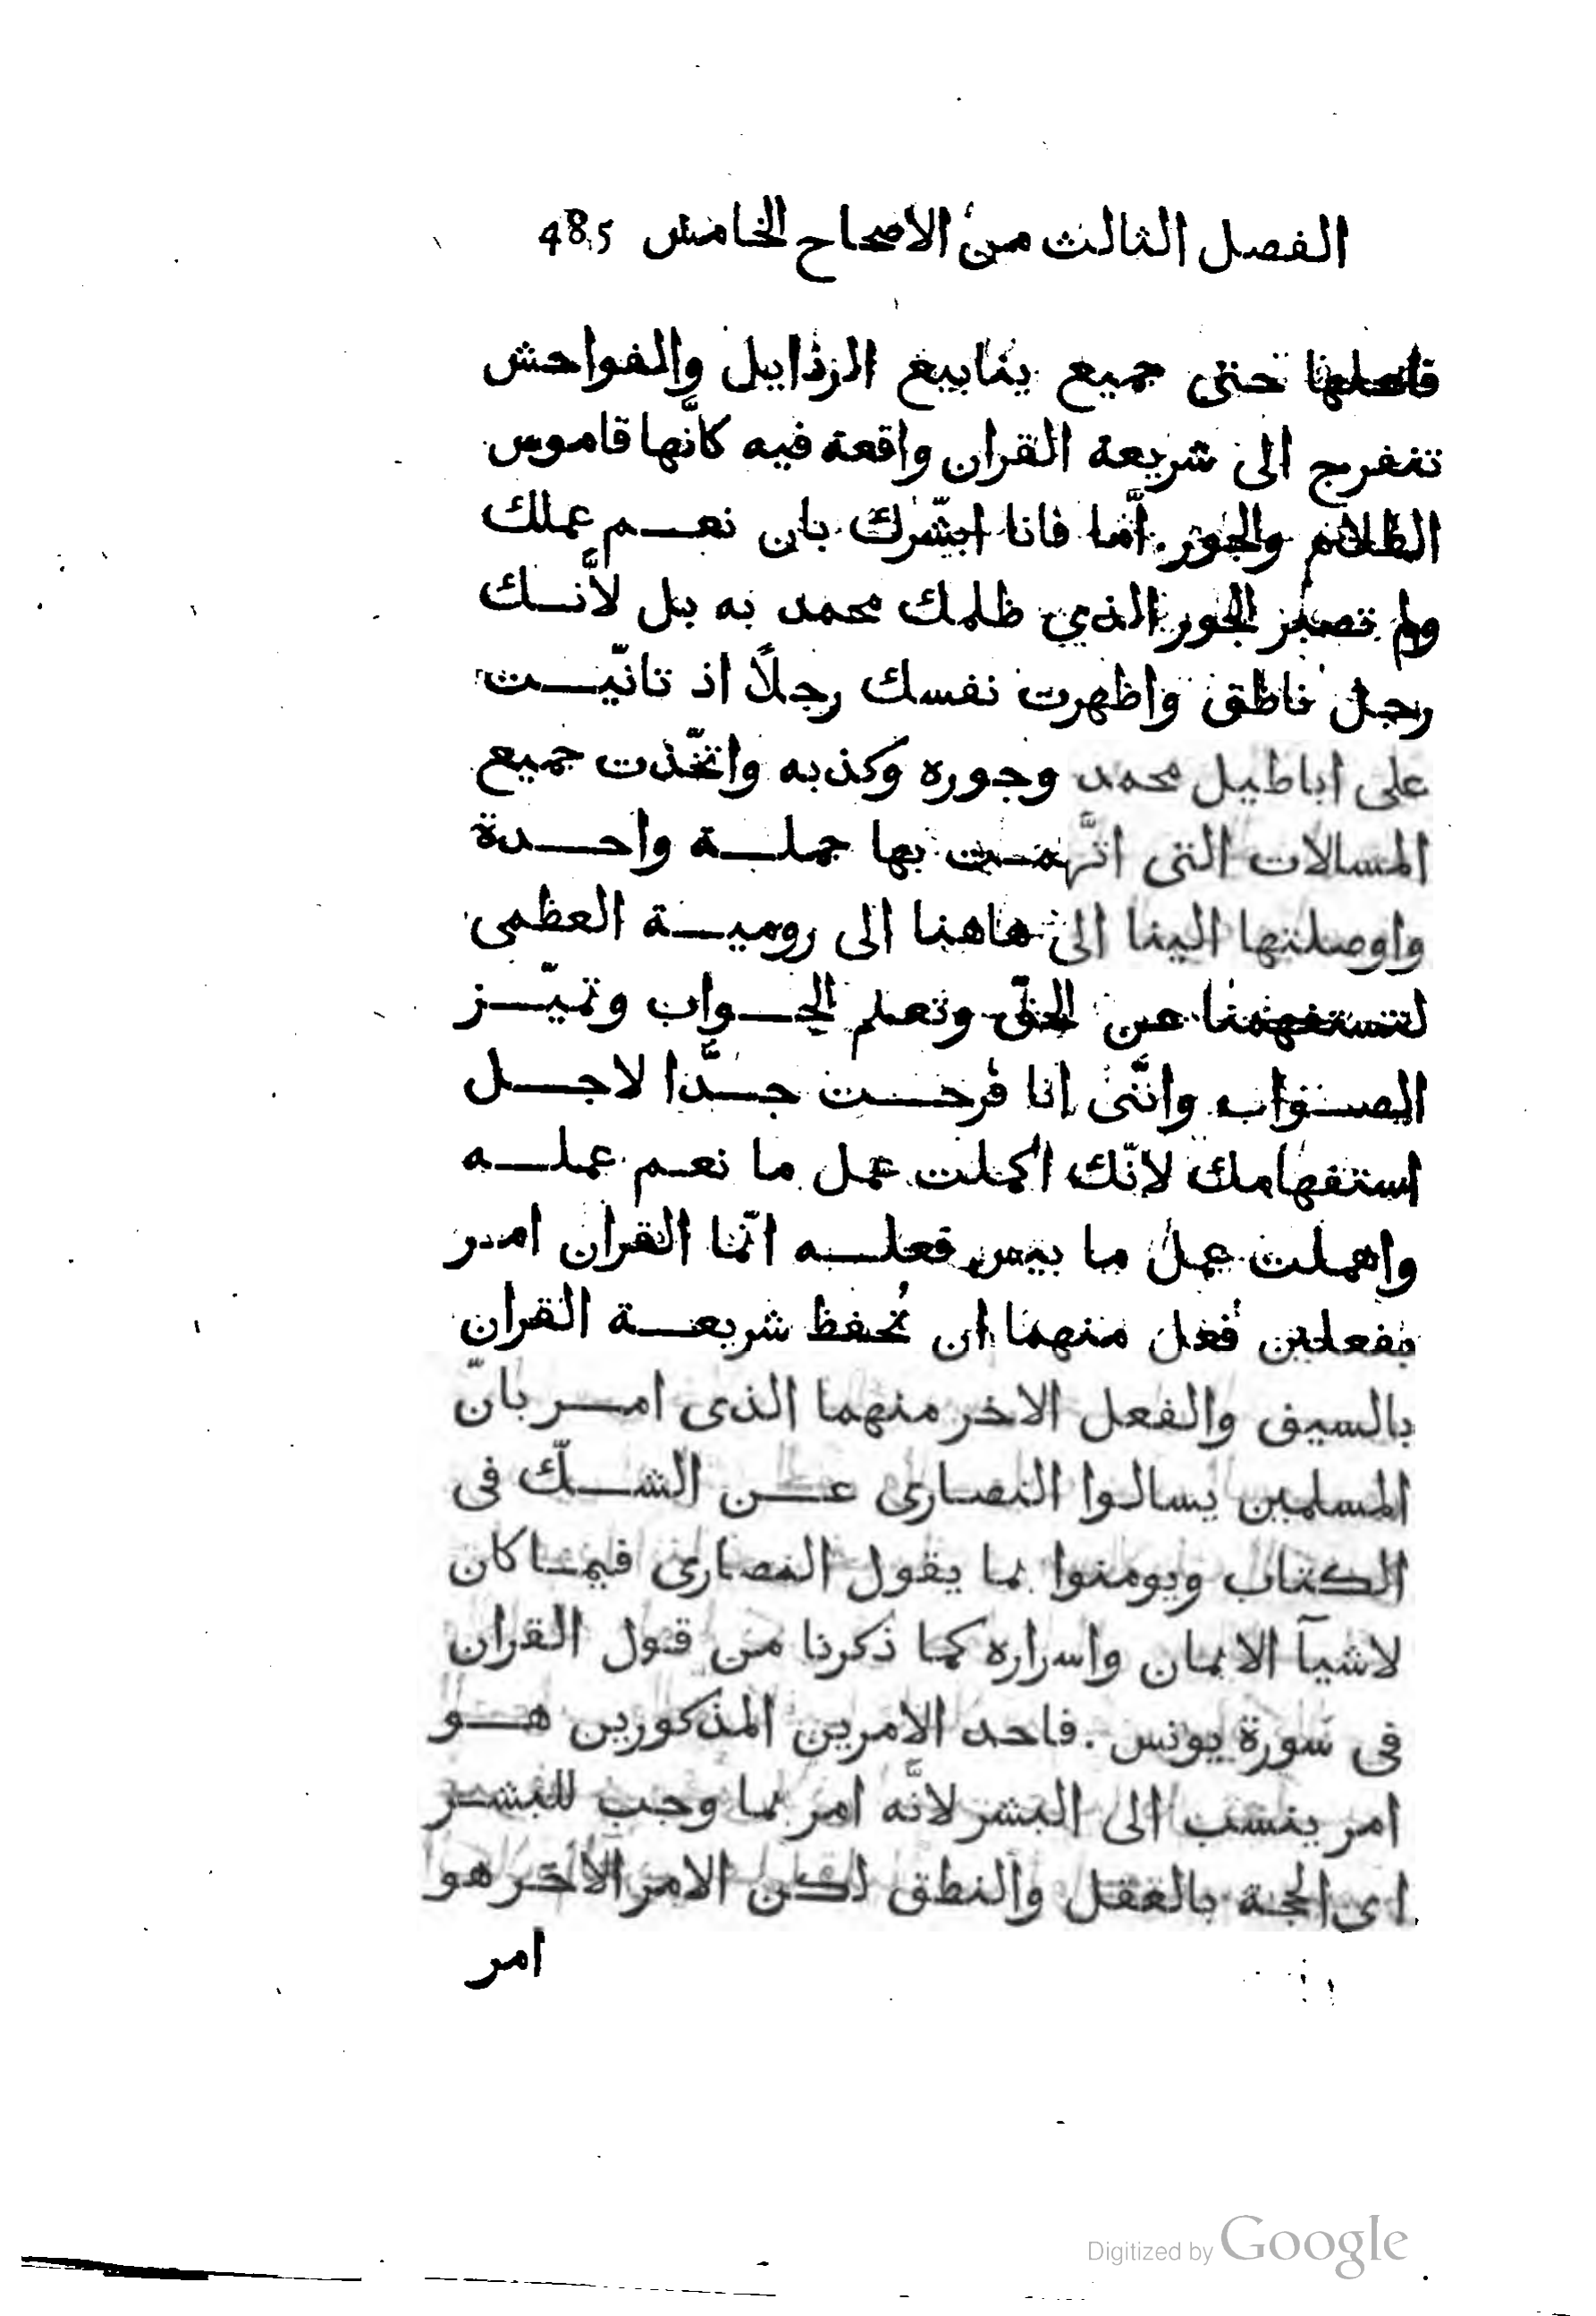 الفصل الثالث من الاصحاح الخامس 485
فاصلها حتى جميع ينابيع الرذايل والفواحش
تنفرج الى شريعة القران واقعة فيه كانَّها قاموس
الظلام والجور. امَّا فانا ابشّرك بان نعم عملك
ولم تصبر الجور الذي ظلمك محمد به بل لانَّك
رجل ناطق واظهرت نفسك رجلاً اذ تانّيت
على اباطيل محمد وجوره وكذبه واتخّذت جميع
المسالات التى اتَّهمت بها جملة واحدة
واوصلتها الينا الى هاهنا الى رومية العظمى
لتستفهمنا عن الحقّ وتعلم الجواب وتميّز
الصواب وانَّنى انا فرحت جدَّا لاجل
استفهامك لانّك اكملت عمل ما نعم عمله
واهملت عمل ما بيس فعله انّما القران امر
بفعلين فعل منهما ان تُحفظ شريعة القران
بالسيف والفعل الاخر منهما الذى امر بانّ
المسلمين يسالوا النصارى عن الشكّ فى
الكتاب ويومنوا بما يقول النصارى فيما كان
لاشيآ الايمان واسراره كما ذكرنا من قول القران
فى سورة يونس . فاحد الامرين المذكورين هو
امر ينسب الى البشر لانَّه امر بما وجب للبشر
اى الجنة بالعقل والنطق لكن الامر الآخر هو
امر
Digitized by Google